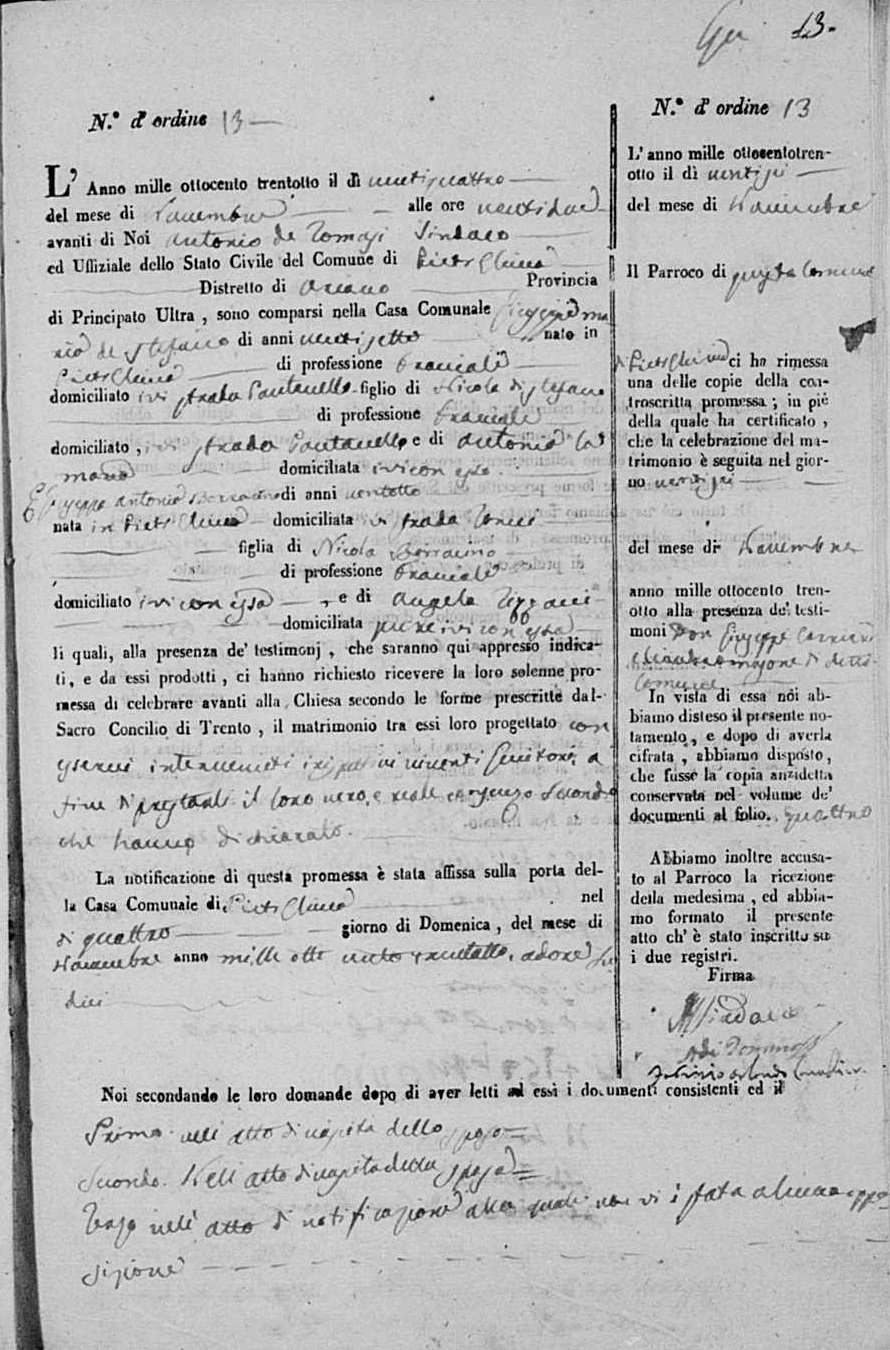 13.
N.° d' ordine 13
L' Anno mille ottocento trentotto il dì ventiquattro
del mese di Novembre alle ore ventidue
avanti di Noi Antonio de Tomasi Sindaco
ed Uffiziale dello Stato Civile del Comune di Pietrelcina
Distretto di Ariano Provincia
di Principato Ultra , sono comparsi nella Casa Comunale Giuseppe ma
rio de Stefano di anni ventisette nato in
Pietrelcina di professione Bracciale
domiciliato ivi strada Pantanello figlio di Nicola di Stefano
di professione Bracciale
domiciliato , ivi strada Pantanello, e di Antonia
domiciliata ivi con esso.
E Giuseppa Antonia Borracino di anni ventotto
nata in Pietrelcina domiciliata ivi strada
figlia di Nicola Borracino
di professione Bracciale
domiciliato ivi con essa , e di Angela Rizzani
domiciliata pure ivi con essa
li quali, alla presenza de' testimonj , che saranno qui appresso indica-
ti, e da essi prodotti , ci hanno richiesto ricevere la loro solenne pro-
messa di celebrare avanti alla Chiesa secondo le forme prescritte dal-
Sacro Concilio di Trento , il matrimonio tra essi loro progettato con
esserci intervenuti i viventi Genitori, a
fine di prestarli il loro vero, e reale consenso secondo
che hanno dichiarato.
La notificazione di questa promessa è stata affissa sulla porta del-
la Casa Comunale di Pietrelcina nel
dì quattro giorno di Domenica , del mese di
Novembre anno mille otto cento trentotto, ad ore se
dici
N.° d' ordine 13
L' anno mille ottocentotren-
otto il dì ventisei
del mese di Novembre
Il Parroco di questa Comune
di Pietrelcina ci ha rimessa
una delle copie della con-
troscritta promessa ; in piè
della quale ha certificato ,
che la celebrazione del ma-
trimonio è seguita nel gior-
no ventisei
del mese di Novembre
anno mille ottocento tren-
otto alla presenza de' testi-
moni Don Giuseppe
di detto
Comune
In vista di essa noi ab-
biamo disteso il presente no-
tamento , e dopo di averla
cifrata , abbiamo disposto,
che fusse la copia anzidetta
conservata nel volume de'
documenti al folio. quattro
Abbiamo inoltre accusa-
to al Parroco la ricezione
della medesima , ed abbia-
mo formato il presente
atto ch' è stato inscritto su
i due registri.
Firma
Il Sindaco
A de Tommasi
Noi secondando le loro domande dopo di aver letti ad essi i documenti consistenti ed il
Primo nell atto di nascita dello sposo
Secondo. Nell atto di nascita della sposa
Terzo nell atto di notificazione alla quale non vi è stata alcuna oppo
sizione